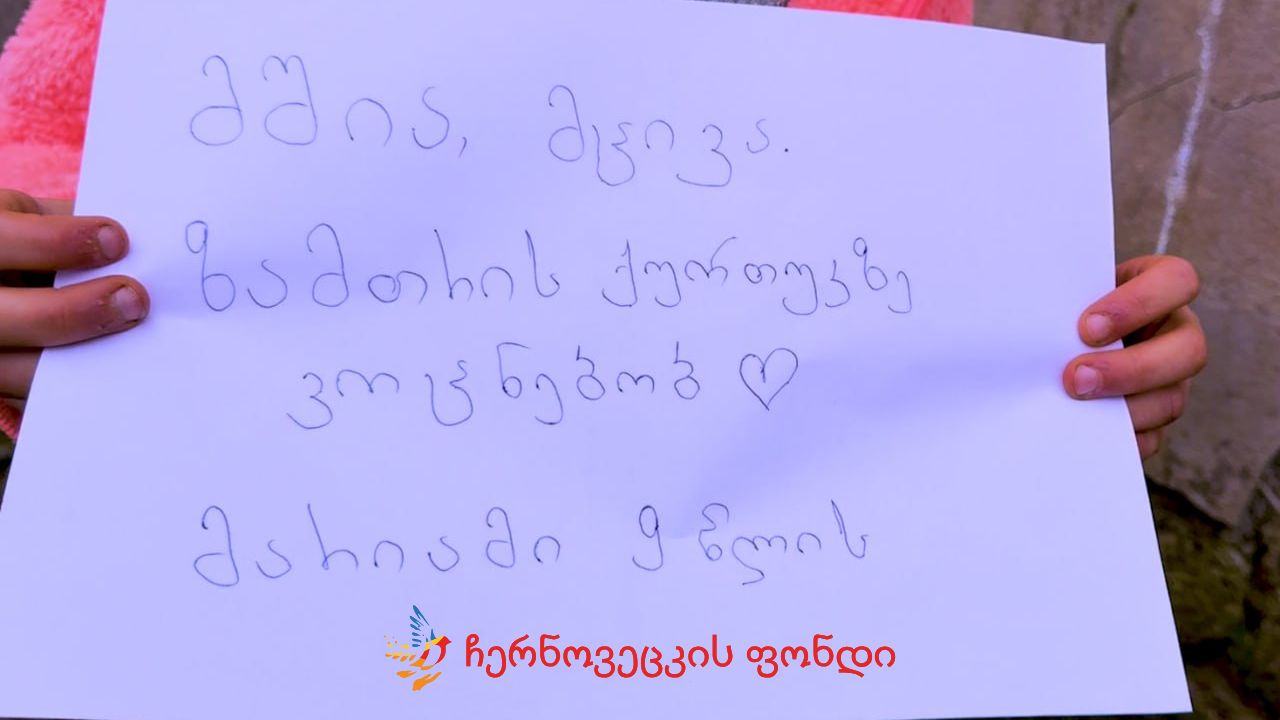 მშია, მცივა.
ზამთრის ქურთუკზე
ვოცნებობ ♡
მარიამი 9 წლის
ჩერნოვეცკის ფონდი